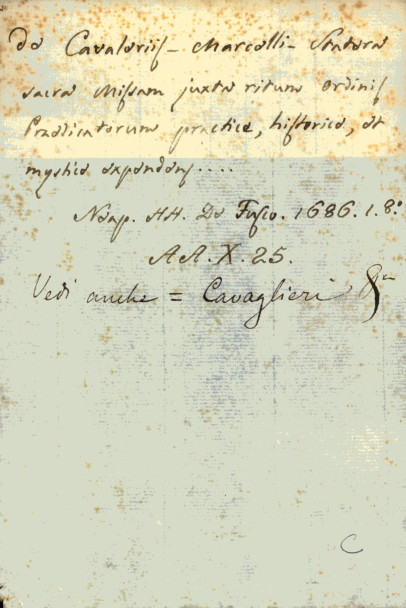 De Cavaleriis - Marcelli - Statera
sacra Missam juxta ritum ordinis
Prædicatorum practice, historice, et
mystice expendens....
Neap. HH. De Fusco. 1686. 1.8.º
AA. X. 25.
Vedi anche = Cavaglieri
C